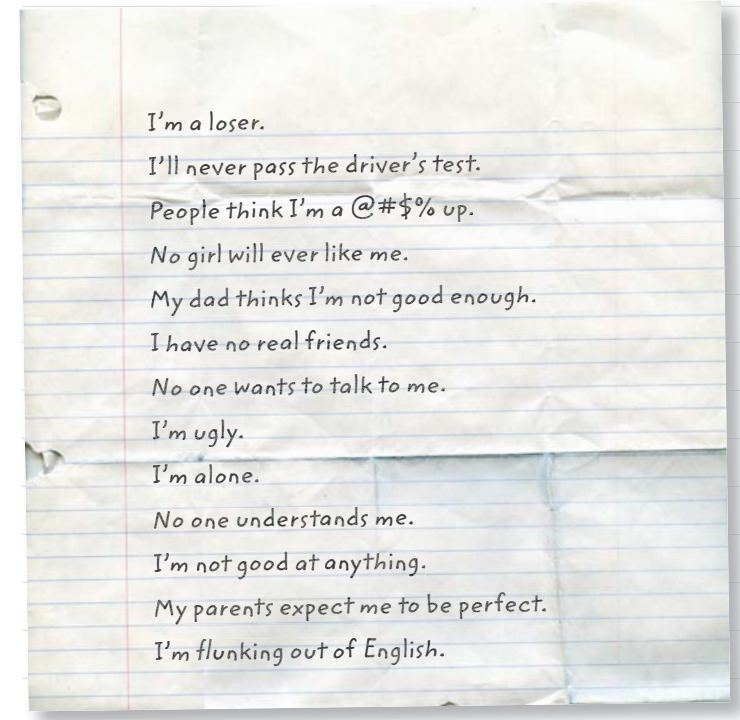 I'm a loser.
I'll never pass the driver's test.
People think I'm a @#$% up.
No girl will ever like me.
My dad thinks I'm not good enough.
I have no real friends.
No one wants to talk to me.
I'm ugly.
I'm alone.
No one understands me.
I'm not good at anything.
My parents expect me to be perfect.
I'm flunking out of English.